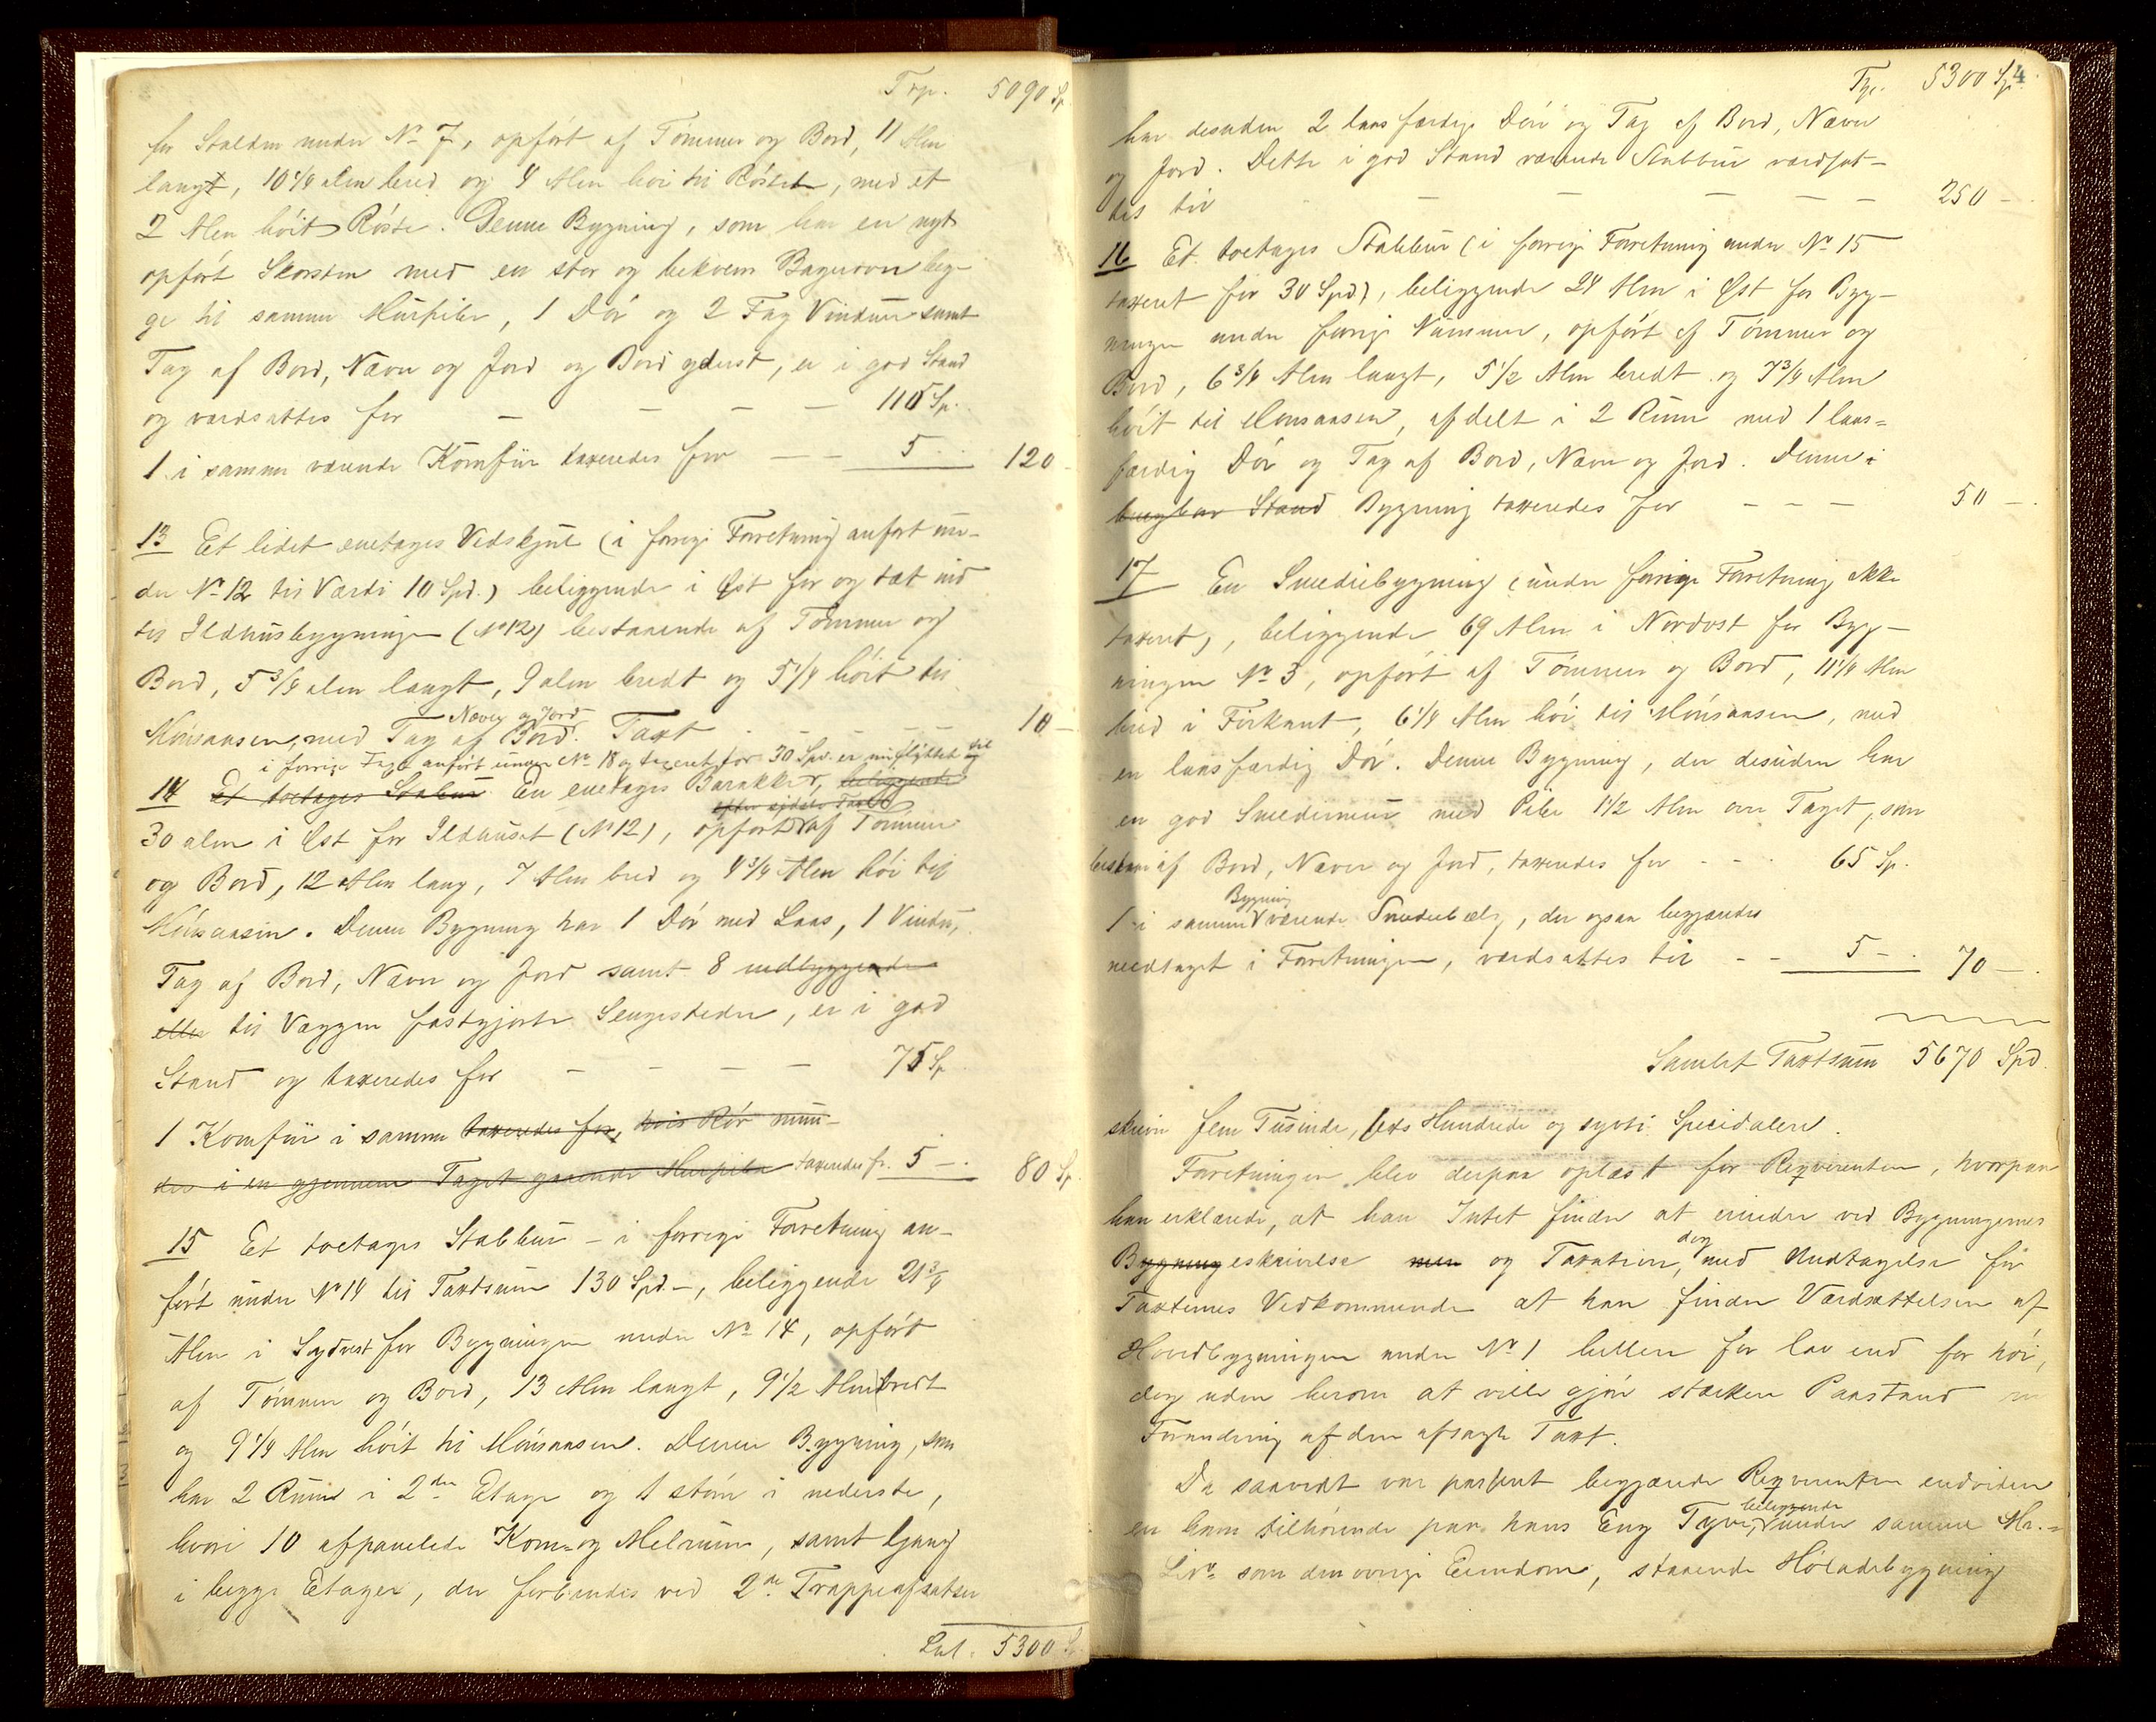 Trp. 5090 Sp
for Stalden under No 7, opført af Tømmer og Bord, 11 Alen
langt, 10 1/4 alen bred og 4 Alen høi til Røstet, med et
2 Alen høit Røste. Denne Bygning, som har en nyt
opført Skorsten med en stor og bekvem Bagerovn beg-
ge til samme Murpibe, 1 Dør og 2 Fag Vinduer samt
Tag af Bord, Næver og Jord og Bord yderst, er i god Stand
og værdsattes for — — — — 115 Sp.
1 i samme værende Komfur taxeredes for — — 5 — 120 -
13 Et lidet enetages Vedskjul (i forrige Forretning anført un-
der No 12 til Værdi 10 Spd.) beliggende i Øst for og tæt ind
til Ildhusbygningen (No 12) bestaaende af Tømmer og
Bord, 5 3/4 alen langt, 9 alen bredt og 5 1/4 høit til
Næver og Jord
Mønsaasen, med Tag af Bord. Taxt - - - - 10 -
i forrige Taxt anført under No 18 og taxeret for 30 Spd. er nu flyttet til
14 Et toetages Stabur En enetages Barakke, beliggende
30 alen i Øst for Ildhuset (No 12), opført af Tømmer
og Bord, 12 Alen lang, 7 Alen bred og 4 3/4 Alen høi til
Mønsaasen. Denne Bygning har 1 Dør med Laas, 1 Vindu,
Tag af Bord, Næver og Jord samt 8 indbyggende
eller til Væggen fastgjorte Sengesteder, er i god
Stand og taxeredes for — — — — 75 Sp
1 Komfur i samme taxeredes for, hvis Rør mun-
des i en gjennem Taget gaaende Murpibe taxeredes fr. 5 — 80 Sp
15 Et toetages Stabbur - i forrige Forretning an-
ført under No 14 til Taxtsum 130 Spd. -, beliggende 21 3/4
Alen i Sydvest for Bygningen under No 14, opført
af Tømmer og Bord, 13 Alen langt, 9 1/2 Alen bredt
og 9 1/4 Alen høit til Mønsaasen. Denne Bygning, som
har 2 Rum i 2den Etage og 1 stør i nederste,
hvori 10 afpanelede Korn- og Melrum, samt Gang
i begge Etager, der forbindes ved 2de Trappeafsatser
Lat. 5300 Sp
Trp. 5300 Sp. 4
har desuden 2 laasfærdige Døre og Tag af Bord, Næver
og Jord. Dette i god Stand værende Stabbur værdsat-
tes til — — — — — 250 -
16 Et toetages Stabbur (i forrige Forretning under No 15
taxeret for 30 Spd), beliggende 24 Alen i Øst for Byg-
ningen under forrige Nummer, opført af Tømmer og
Bord, 6 3/4 Alen langt, 5 1/2 Alen bredt og 7 3/4 Alen
høit til Mønsaasen, afdelt i 2 Rum med 1 laas-
færdig Dør og Tag af Bord, Næver og Jord. Denne i
brugbar Stand Bygning taxeredes for — — — 50 -
17 En Smediebygning (under forrige Forretning ikke
taxeret), beliggende 69 Alen i Nordost for Byg-
ningen No 3, opført af Tømmer og Bord, 11 1/4 Alen
bred i Firkant, 6 1/4 Alen høi til Mønsaasen, med
en laasfærdig Dør. Denne Bygning, der desuden har
en god Smediemur med Pibe 1 1/2 Alen over Taget, som
bestaar af Bord, Næver og Jord, taxeredes for - - - 65 Sp.
Bygning
1 i samme værende Smedebælg, der ogsaa begjæredes
medtaget i Forretningen, værdsattes til - - 5 - 70 -
Samlet Taxtsum 5670 Spd.
skriver fem Tusinde, sex Hundrede og sytti Speciedaler.
Forretningen blev derpaa oplæst for Reqvirenten, hvorpaa
han erklærede, at han Intet finder at erindre ved Bygningernes
Bygningeskrivelse men og Taxation, dog med Undtagelse for
Taxternes Vedkommende at han finder Værdsættelsen af
Hovedbygningen under No 1 hellere for lav end for høi,
dog uden herom at ville gjøre stærkere Paastand
Forandring af den afsagte Taxt.
Da saavidt var passeret begjærede Reqvirenten endvidere
beliggende
en ham tilhørende paa hans Eng under samme Mr.-
No som den øvrige Eiendom, staaende Høladebygning